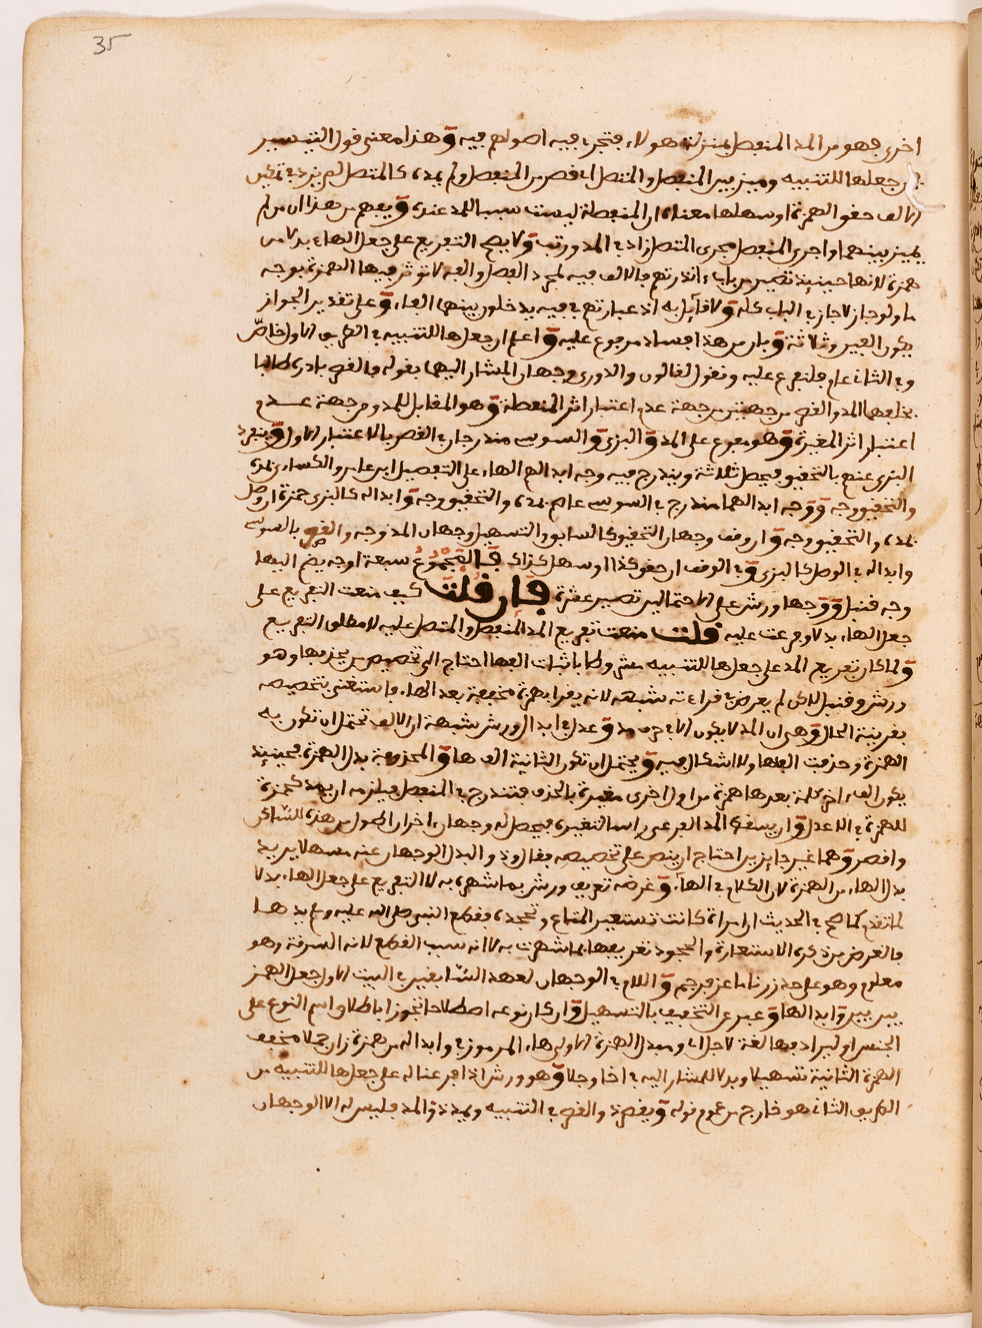 35
اخرى فهو من المد المنفصل بمنزلة هولاء فتجرى فيه اصولهم فيه وهذا معنى قول التيسير
ومن جعلها للتنبيه وميز بين المنفصل والمتصل اى قصر من المنفصل ولم يمده كالمتصل لم يزد في تمكين
الالف حقق الهمزة او سهلها معناه ان المنفصلة ليست سببا للمد عنده ويفهم من هذا ان من لم
يميز بينهما واجرى المنفصل مجرى المتصل زاد في المد ورتب ولا يصح التفريع على جعل الهاء بدلا من
همزة لانها حينيذ تصير من باب ءانذرتهم فالالف فيه لمجرد الفصل والفه لا توثر فيها الهمزة بوجه
ما ولو جاز لاجاز في الباب كله ولا قايل به اذ عبارتهم فيه يدخلون بينهما الفا وعلى تقدير الجواز
يكون لغير وثلاثة وبان من هذا فساد مرجوع عليه واعلم ان جعلها للتنبيه في الطريق الاول خاص
وفي الثاني عام فلنفرع عليه ونقول لقالون والدوري وجهان المشار اليهما بقوله فالقصر بادره طالبا
بخلفهما المد والقصر من جهتين من جهة عدم اعتبار اثر المنفصلة وهو المقابل للمد ومن جهة عدم
اعتبار اثر المغيرة وهو مفرع على المد والبزي والسوسي مندرجان في القصر بالاعتبار الاول وينفرد
البزي عنهم بالتحقيق فيحصل ثلاثة ويندرج فيه وجه ابدالهم الهاء على التفصيل ابن عامر والكسائي بمده
والتحقيق وجه ووجه ابدالهما مندرج في السوسي عاصم بمده والتحقيق وجه وابداله كالبزي حمزة ان وصل
بمده والتحقيق وجه وان وقف وجهان التحقيق كالسابق والتسهيل وجهان المد وجه والقصر بالسوسي
وابداله في الوصل كالبزي وفي الوقف ان حقق كذا او سهل كذاك فالمجموع سبعة اوجه يضم اليها
وجه قنبل ووجها ورش على الاحتمالين تصير عشرة فان قلت كيف منعت التفريع على
جعل الهاء بدلا وفرعت عليه قلت منعت تفريع المد المنفصل والمتصل عليه لا مطلق التفريع
ولما كان تفريع المد على جعلها للتنبيه مشروطا باثبات الفها احتاج الى تخصيص من يحذفها وهو
ورش وقنبل لاكن لم يعرض في قراءته شبهه لانه يقرا بهمزة مخففة بعد الهاء فاستغنى بتخصيصه
بقرينة الحال وهي ان المد لا يكون الا في حرف مد وعدل في ابدال ورش شبهة ان الالف تحتمل ان تكون به
الهمزة وحذفت الفها ولا اشكال فيه ويحتمل ان تكون الثانية الف ها والمحذوفة بدل الهمزة فحينيذ
يكون الف اخر كلمة بعدها همزة من اول اخرى مغيرة بالحذف فتندرج في المنفصل فيلزمه ان يمد كحمزة
للهمزة في الاعدل وان يسقط المد الفرعي راسا لتغيره فيحصل له وجهان اخران اطول من هذه للساكن
واقصر وهما غير جايزين احتاج ان ينص على تخصيصه فقال وذو البدل الوجهان عنه مسهلا يريد
بدل الهاء من الهمزة لان الكلام في الهاء وغرضه تعريف ورش بما شهر به لا التفريع على جعل الهاء بدلا
لما تقدم كما صح في الحديث ان امراة كانت تستعير المتاع وتجحده فقطع النبي صلى الله عليه وسلم يدها
فالغرض من ذكره الاستعارة والجحود تعريفها بما شهرت به لا انه سبب القطع لانه السرقة وهو
معلوم وهو على حد زرنا ماعز فرجم واللام في الوجهان لعهد السابقين في البيت الاول جعل الهمز
بين بين وابدالها وعبر عن التخفيف بالتسهيل وان كان نوعه اصطلاحا تجوزا باطلاق اسم النوع على
الجنس او ليرادفهما لغة لاجل اى ومبدل الهمزة الاولى هاء المرموز في وابداله من همزة زان جملا مخفف
الهمزة الثانية تسهيلا وبدلا للمشار اليه في اخا وجلا وهو ورش اذا فرعنا له على جعلها للتنبيه من
الطريق الثاني هو خارج من عموم قوله ويقصر ذو القصر في التنبيه ويمد ذو المد فليس له الا الوجهان